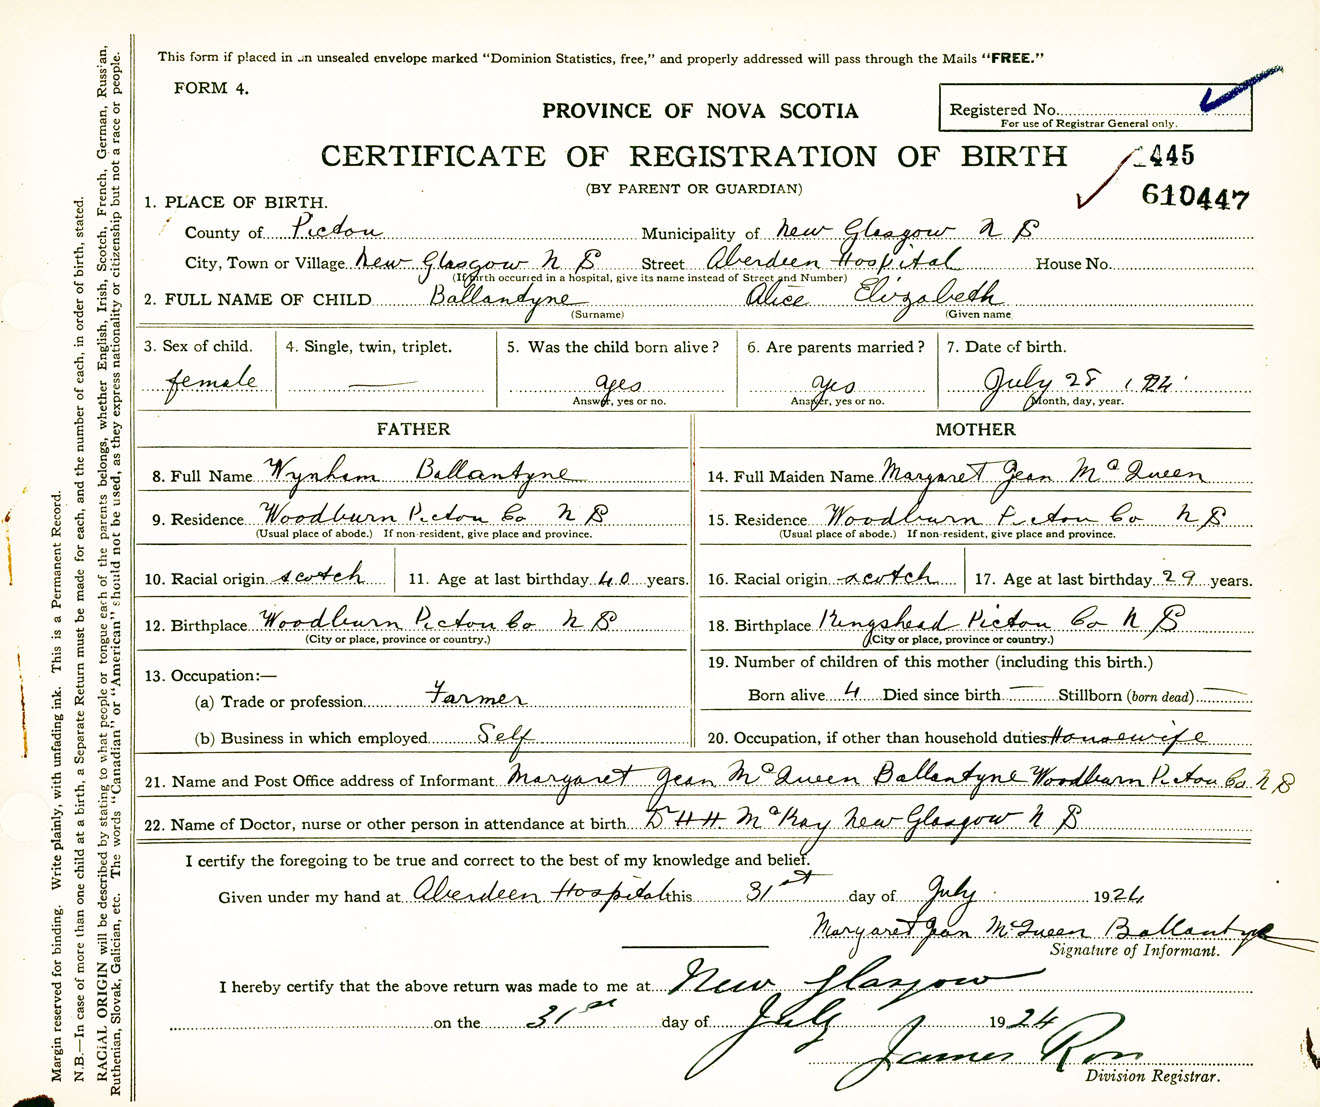 This form if placed in an unsealed envelope marked “Dominion Statistics, free,” and properly addressed will pass through the Mails “FREE.”
FORM 4.
PROVINCE OF NOVA SCOTIA
Registered No.
For use of Registrar General only.
CERTIFICATE OF REGISTRATION OF BIRTH
445
(BY PARENT OR GUARDIAN)
610447
1. PLACE OF BIRTH.
County of Pictou Municipality of New Glasgow N S
City, Town or Village New Glasgow N S Street Aberdeen Hospital House No.
(If birth occurred in a hospital, give its name instead of Street and Number)
2. FULL NAME OF CHILD Ballantyne Alice Elizabeth
(Surname) (Given name)
3. Sex of child. 4. Single, twin, triplet. 5. Was the child born alive? 6. Are parents married? 7. Date of birth.
female — yes yes July 28 1924
Answer, yes or no. Answer, yes or no. Month, day, year.
FATHER MOTHER
8. Full Name Wynham Ballantyne 14. Full Maiden Name Margaret Jean McQueen
9. Residence Woodburn Pictou Co N S 15. Residence Woodburn Pictou Co N S
(Usual place of abode.) If non-resident, give place and province. (Usual place of abode.) If non-resident, give place and province.
10. Racial origin scotch 11. Age at last birthday 40 years. 16. Racial origin scotch 17. Age at last birthday 29 years.
12. Birthplace Woodburn Pictou Co N S 18. Birthplace Kingshead Pictou Co N S
(City or place, province or country.) (City or place, province or country.)
13. Occupation:— 19. Number of children of this mother (including this birth.)
(a) Trade or profession Farmer Born alive 4 Died since birth — Stillborn (born dead) —
(b) Business in which employed Self 20. Occupation, if other than household duties Housewife
21. Name and Post Office address of Informant Margaret Jean McQueen Ballantyne Woodburn Pictou Co. N S
22. Name of Doctor, nurse or other person in attendance at birth Dr H H McKay New Glasgow N S
I certify the foregoing to be true and correct to the best of my knowledge and belief.
Given under my hand at Aberdeen Hospital this 31st day of July 1924
Margaret Jean McQueen Ballantyne
Signature of Informant.
I hereby certify that the above return was made to me at New Glasgow
on the 31st day of July 1924
James Ross
Division Registrar.
Margin reserved for binding. Write plainly, with unfading ink. This is a Permanent Record.
N.B.—In case of more than one child at a birth, a Separate Return must be made for each, and the number of each, in order of birth, stated.
RACIAL ORIGIN will be described by stating to what people or tongue each of the parents belongs, whether English, Irish, Scotch, French, German, Russian,
Ruthenian, Slovak, Galician, etc. The words “Canadian” or “American” should not be used, as they express nationality or citizenship but not a race or people.